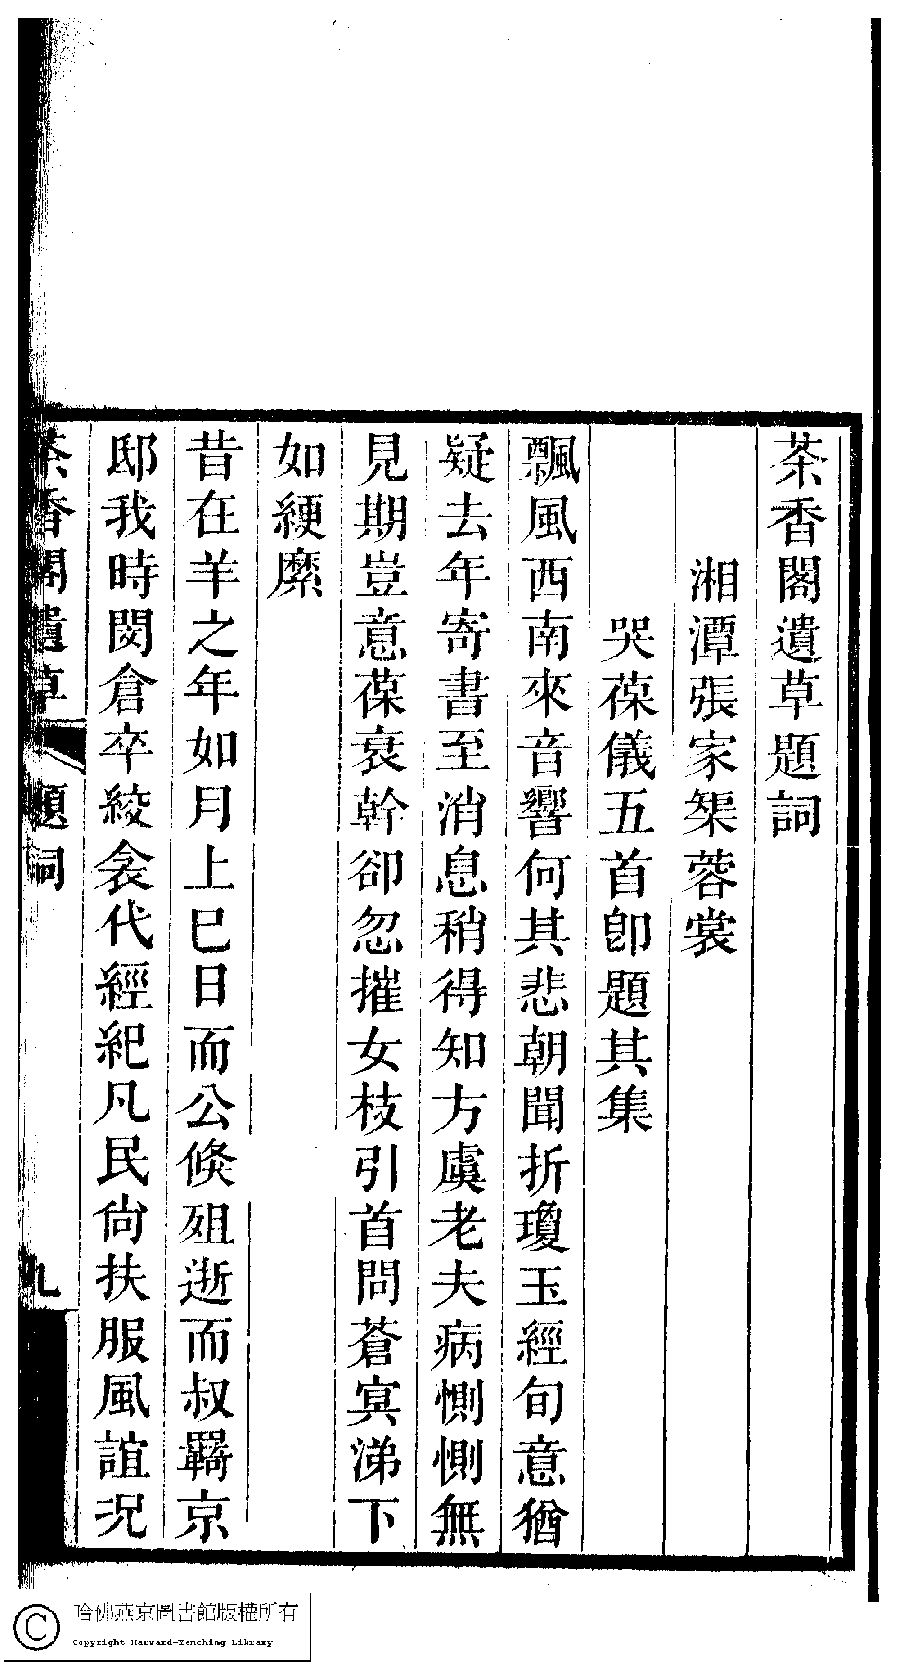 茶香閣遺草題詞
湘潭張家榘蓉裳
哭葆儀五首卽題其集
飄風西南來音響何其悲朝聞折瓊玉經旬意猶
疑去年寄書至消息稍得知方虞老夫病惻惻無
見期豈意葆衰幹卻忽摧女枝引首問蒼冥涕下
如綆縻
昔在羊之年如月上巳日而公倐殂逝而叔羇京
邸我時閔倉卒絞衾代經紀凡民尙扶服風誼况
茶香閣遺草
題詞
九
哈佛燕京圖書館版權所有
Copyright Harvard-Yenching Library